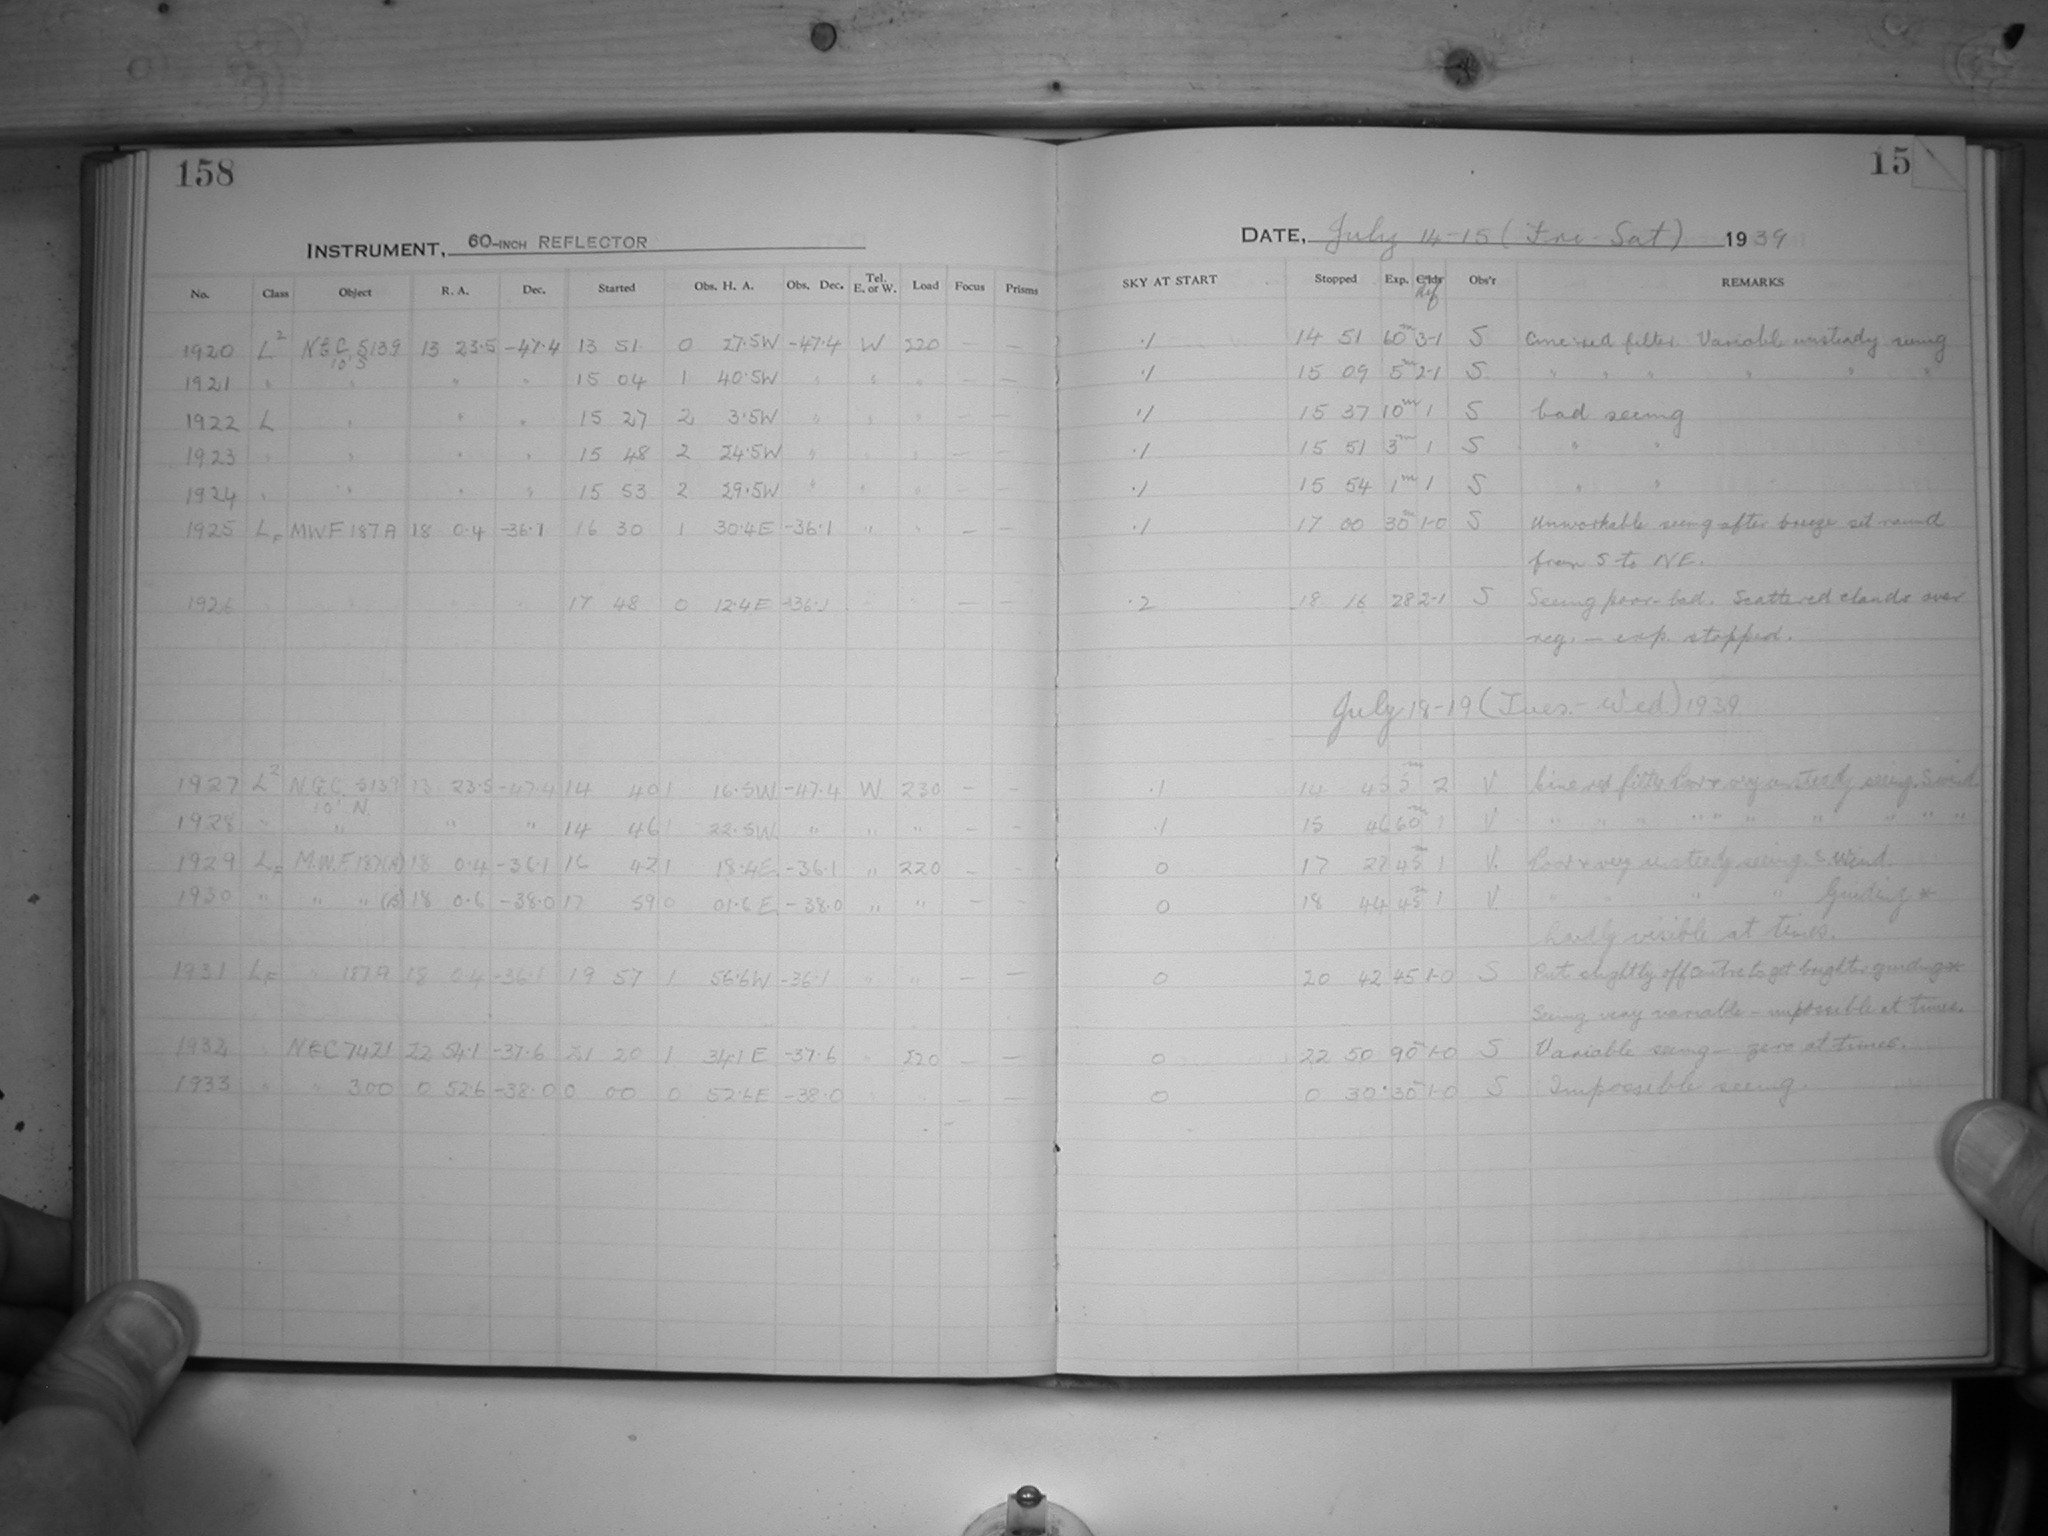 158
INSTRUMENT, 60-INCH REFLECTOR
No. Class Object R. A. Dec. Started Obs. H. A. Obs. Dec. Tel. E. or W. Load Focus Prisms
1920 L2 NGC 5139 13 23.5 -47.4 13 51 0 27.5W -47.4 W 220
10' S
1921 " " " " 15 04 1 40.5W " " " — —
1922 L " " " 15 27 2 3.5W " " " — —
1923 " " " " 15 48 2 24.5W " " " — —
1924 " " " " 15 53 2 29.5W " " " — —
1925 LF MWF 187A 18 0.4 -36.1 16 30 1 30.4E -36.1 " " — —
1926 " " " 17 48 0 12.4E -36.1 — —
1927 L2 N.G.C. 5139 13 23.5 -47.4 14 40 1 16.5W -47.4 W. 230 — —
10' N.
1928 " " " " 14 46 1 22.5W " " " — —
1929 LF M.W.F 187(A) 18 0.4 -36.1 16 42 1 18.4E -36.1 " 220 — —
1930 " " " (B) 18 0.6 -38.0 17 59 0 01.6E -38.0 " " — —
1931 LF " 187A 18 0.4 -36.1 19 57 1 56.6W -36.1 " " — —
1932 " NGC 7421 22 54.1 -37.6 21 20 1 34.1E -37.6 " 220 — —
1933 " " 300 0 52.6 -38.0 0 00 0 52.6E -38.0 " " — —
15
DATE, July 14-15 (Fri-Sat) 1939
SKY AT START Stopped Exp. Obs'r REMARKS
Def
.1 14 51 60m 3-1 S Cine red filter. Variable unsteady seeing
.1 15 09 5m 2-1 S " " " " " "
.1 15 37 10m 1 S bad seeing
.1 15 51 3m 1 S " "
.1 15 54 1m 1 S " "
.1 17 00 30m 1-0 S Unworkable seeing after breeze set round
from S to NE.
.2 18 16 28 2-1 S Seeing poor-bad. Scattered clouds over
reg. — exp. stopped.
July 18-19 (Tues.-Wed) 1939
.1 14 45 5m 2 V Cine red filter. Poor & very unsteady seeing. S wind.
.1 15 46 60m 1 V " " " " " " " " " "
0 17 27 45m 1 V. Poor & very unsteady seeing. S wind.
0 18 44 45m 1 V. " " " " Guiding *
hardly visible at times.
0 20 42 45 1-0 S Put slightly off centre to get brighter guiding *
Seeing very variable — impossible at times.
0 22 50 90m 1-0 S Variable seeing — zero at times.
0 0 30 30m 1-0 S Impossible seeing.